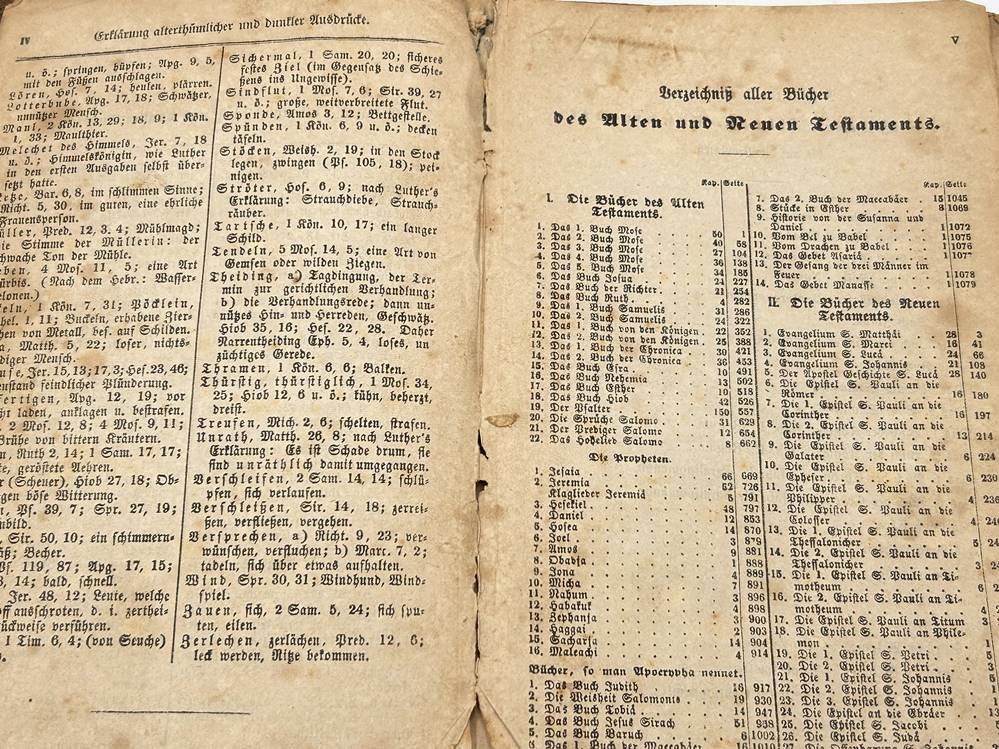 IV
Erklärung alterthümlicher und dunkler Ausdrücke.
u. ö.; springen, hüpfen; Apg. 9, 5,
mit den Füßen ausschlagen.
Lören, Hos. 7, 14; heulen, plärren.
Lotterbube, Apg. 17, 18; Schwätzer,
unnützer Mensch.
Maul, 2 Kön. 13, 29; 18, 9; 1 Kön.
1, 33; Maulthier.
Melechet des Himmels, Jer. 7, 18
u. ö.; Himmelskönigin, wie Luther
in den ersten Ausgaben selbst über-
setzt hatte.
Bar. 6, 8, im schlimmen Sinne;
Richt. 5, 30, im guten, eine ehrliche
Frauensperson.
Pred. 12, 3. 4; Mühlmagd;
die Stimme der Müllerin: der
schwache Ton der Mühle.
4 Mos. 11, 5; eine Art
(Nach dem Hebr.: Wasser-
1 Kön. 7, 31; Pöcklein,
1, 11; Buckeln, erhabene Zier-
von Metall, bes. auf Schilden.
Matth. 5, 22; loser, nichts-
Mensch.
Jer. 15, 13; 17, 3; Hes. 23, 46;
feindlicher Plünderung.
Apg. 12, 19; vor
laden, anklagen u. bestrafen.
2 Mos. 12, 8; 4 Mos. 9, 11;
Brühe von bittern Kräutern.
Ruth 2, 14; 1 Sam. 17, 17;
geröstete Aehren.
(Scheuer), Hiob 27, 18; Ob-
böse Witterung.
Ps. 39, 7; Spr. 27, 19;
Sir. 50, 10; ein schimmern-
Becher.
Ps. 119, 87; Apg. 17, 15;
14; bald, schnell.
Jer. 48, 12; Leute, welche
ausschroten, d. i. zerthei-
verführen.
1 Tim. 6, 4; (von Seuche)
Sichermal, 1 Sam. 20, 20; sicheres
festes Ziel (im Gegensatz des Schie-
ßens ins Ungewisse).
Sindflut, 1 Mos. 7, 6; Sir. 39, 27
u. ö.; große, weitverbreitete Flut.
Sponde, Amos 3, 12; Bettgestelle.
Spünden, 1 Kön. 6, 9 u. ö.; decken
täfeln.
Stöcken, Weish. 2, 19; in den Stock
legen, zwingen (Ps. 105, 18); pei-
nigen.
Ströter, Hos. 6, 9; nach Luther's
Erklärung: Strauchdiebe, Strauch-
räuber.
Tartsche, 1 Kön. 10, 17; ein langer
Schild.
Tendeln, 5 Mos. 14, 5; eine Art von
Gemsen oder wilden Ziegen.
Theiding, a) Tagdingung, der Ter-
min zur gerichtlichen Verhandlung;
b) die Verhandlungsrede; dann un-
nützes Hin- und Herreden, Geschwätz.
Hiob 35, 16; Hes. 22, 28. Daher
Narrentheiding Eph. 5, 4, loses, un
züchtiges Gerede.
Thramen, 1 Kön. 6, 6; Balken.
Thürstig, thürstiglich, 1 Mos. 34,
25; Hiob 12, 6 u. ö.; kühn, beherzt,
dreist.
Treufen, Mich. 2, 6; schelten, strafen.
Unrath, Matth. 26, 8; nach Luther's
Erklärung: Es ist Schade drum, sie
sind unräthlich damit umgegangen.
Verschleifen, 2 Sam. 14, 14; schlü-
pfen, sich verlaufen.
Verschleißen, Sir. 14, 18; zerrei-
ßen, verfließen, vergehen.
Versprechen, a) Richt. 9, 23; ver-
wünschen, verfluchen; b) Marc. 7, 2;
tadeln, sich über etwas aufhalten.
Wind, Spr. 30, 31; Windhund, Wind-
spiel.
Zauen, sich, 2 Sam. 5, 24; sich spu-
ten, eilen.
Zerlechen, zerlächen, Pred. 12, 6;
leck werden, Ritze bekommen.
V
Verzeichniß aller Bücher
des Alten und Neuen Testaments.
Kap. Seite
I. Die Bücher des Alten
Testaments.
1. Das 1. Buch Mose 50 1
2. Das 2. Buch Mose 40 58
3. Das 3. Buch Mose 27 104
4. Das 4. Buch Mose 36 138
5. Das 5. Buch Mose 34 185
6. Das Buch Josua 24 227
7. Das Buch der Richter 21 254
8. Das Buch Ruth 4 282
9. Das 1. Buch Samuelis 31 286
10. Das 2. Buch Samuelis 24 322
11. Das 1. Buch von den Königen 22 352
12. Das 2. Buch von den Königen 25 388
13. Das 1. Buch der Chronica 30 421
14. Das 2. Buch der Chronica 36 453
15. Das Buch Esra 10 491
16. Das Buch Nehemia 13 502
17. Das Buch Esther 10 518
18. Das Buch Hiob 42 526
19. Der Psalter 150 557
20. Die Sprüche Salomo 31 629
21. Der Prediger Salomo 12 654
22. Das Hohelied Salomo 8 662
Die Propheten.
1. Jesaia 66 669
2. Jeremia 52 726
Klaglieder Jeremiä 5 791
3. Hesekiel 48 797
4. Daniel 12 853
5. Hosea 14 870
6. Joel 3 879
7. Amos 9 881
8. Obadja 1 888
9. Jona 4 889
10. Micha 7 891
11. Nahum 3 896
12. Habakuk 4 898
13. Zephanja 3 900
14. Haggai 2 903
15. Sacharja 14 904
16. Maleachi 4 914
Bücher, so man Apocrypha nennet.
1. Das Buch Judith 16 917
2. Die Weisheit Salomonis 19 930
3. Das Buch Tobiä 14 947
4. Das Buch Jesus Sirach 51 958
5. Das Buch Baruch 6 1002
6. Das 1. Buch der Maccabäer
Kap. Seite
7. Das 2. Buch der Maccabäer 15 1045
8. Stücke in Esther 8 1069
9. Historie von der Susanna und
Daniel 1 1072
10. Vom Bel zu Babel 1 1075
11. Vom Drachen zu Babel 1 1076
12. Das Gebet Asariä 1
13. Der Gesang der drei Männer im
Feuer 1 1078
14. Das Gebet Manasse 1 1079
II. Die Bücher des Neuen
Testaments.
1. Evangelium S. Matthäi 28
2. Evangelium S. Marci 16 41
3. Evangelium S. Lucä 24 66
4. Evangelium S. Johannis 21 108
5. Der Apostel Geschichte S. Lucä 28 140
6. Die Epistel S. Pauli an die
Römer 16 180
7. Die 1. Epistel S. Pauli an die
Corinther 16 197
8. Die 2. Epistel S. Pauli an die
Corinther 13 214
9. Die Epistel S. Pauli an die
Galater 6 224
10. Die Epistel S. Pauli an die
Epheser 6 230
11. Die Epistel S. Pauli an die
Philipper 4 236
12. Die Epistel S. Pauli an die
Colosser 4
13. Die 1. Epistel S. Pauli an die
Thessalonicher 5
14. Die 2. Epistel S. Pauli an die
Thessalonicher 3
15. Die 1. Epistel S. Pauli an Ti-
motheum 6
16. Die 2. Epistel S. Pauli an Ti-
motheum 4
17. Die Epistel S. Pauli an Titum 3
18. Die Epistel S. Pauli an Phile-
mon
19. Die 1. Epistel S. Petri 5
20. Die 2. Epistel S. Petri 3
21. Die 1. Epistel S. Johannis 5
22. Die 2. Epistel S. Johannis 1
23. Die 3. Epistel S. Johannis 1
24. Die Epistel an die Ebräer 13
25. Die Epistel S. Jacobi
26. Die Epistel S. Judä